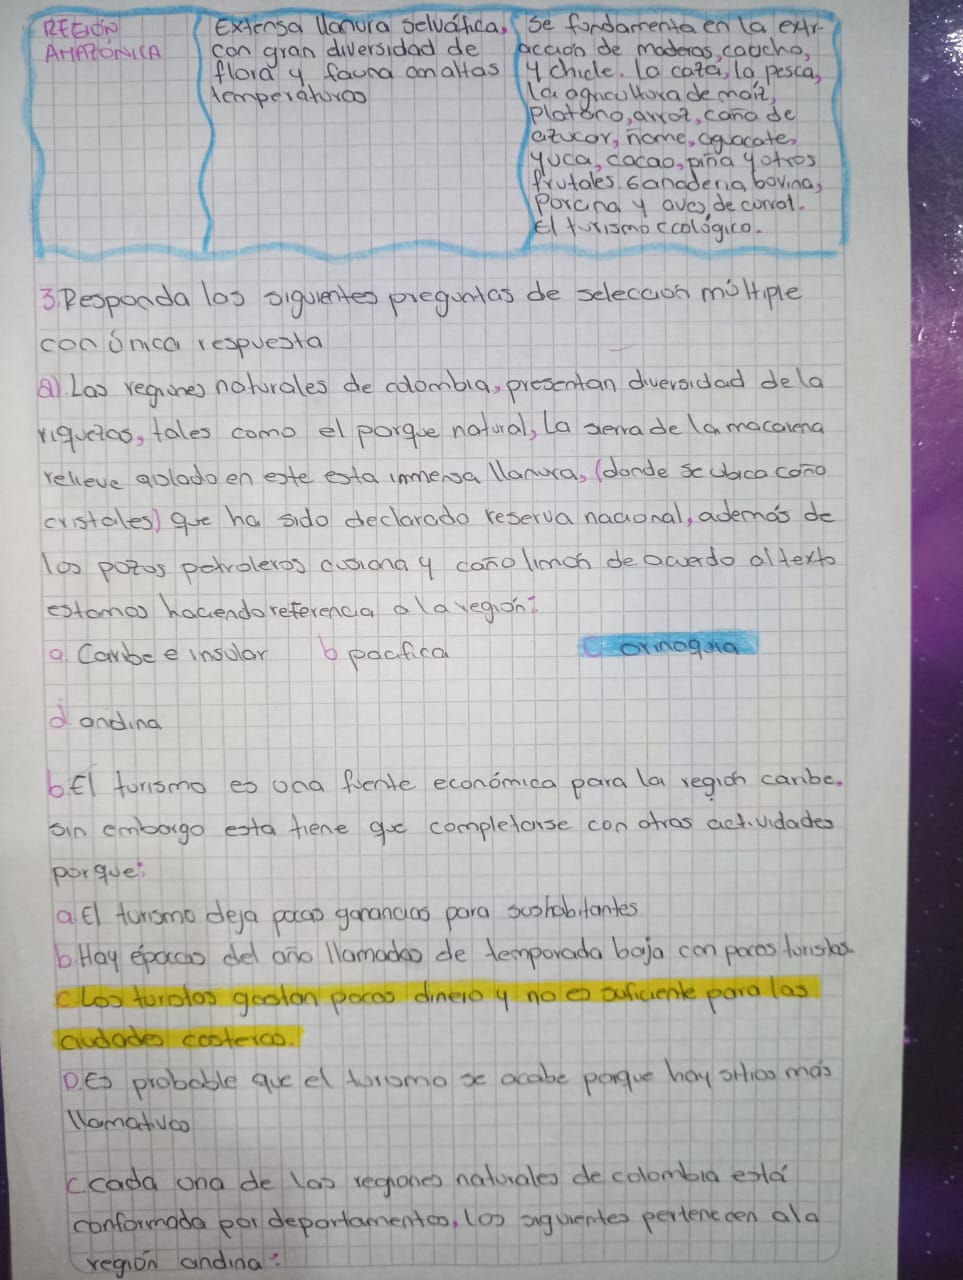 REGIÓN
AMAZÓNICA
Extensa llanura selvática,
con gran diversidad de
flora y fauna con altas
temperaturas
se fundamenta en la extr-
acción de maderas, caucho,
y chicle. la caza, la pesca,
la agricultura de maíz,
platano, arroz, caña de
azucar, ñame, aguacate,
yuca, cacao, piña y otros
frutales. Ganaderia bovina,
porcina y aves de corral.
El turismo ecológico.
3. Responda las siguientes preguntas de selección múltiple
con única respuesta
a). Las regiones naturales de colombia, presentan diversidad de la
riquezas, tales como el parque natural, La sierra de la macarena
relieve aislado en este esta immensa llanura, (donde se ubica caño
cristales) que ha sido declarado reserva nacional, además de
los pozos petroleros cusiana y caño limón de acuerdo al texto
estamos haciendo referencia a la región:
a. Caribe e insular b pacifica c orinoquia
d andina
b. El turismo es una fuente económica para la región caribe.
sin embargo esta tiene que completarse con otras actividades
porque:
a. El turismo deja pocas ganancias para sus habitantes
b. Hay épocas del año llamadas de temporada baja con pocos turistas
c. Los turistas gastan pocos dinero y no es suficiente para las
ciudades costeras.
D. Es probable que el turismo se acabe porque hay sitios más
llamativos
c. cada una de las regiones naturales de colombia está
conformada por departamentos, los siguientes pertenecen a la
región andina: